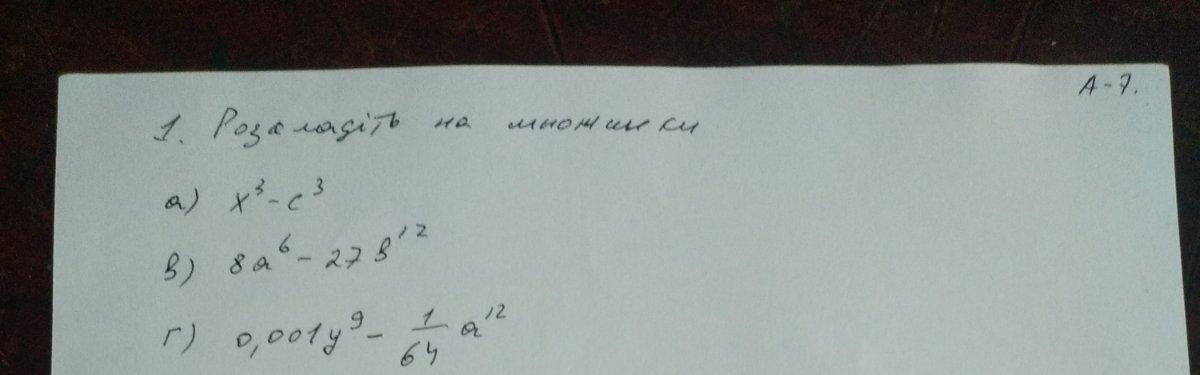 А-7.
1. Розкладіть на множники
а) x³-c³
в) 8a⁶-27b¹²
г) 0,001y⁹-1/64a¹²